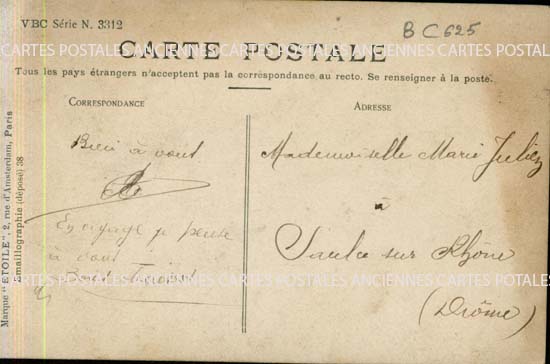 VBC Série N. 3312
BC625
CARTES POSTALES ANCIENNES CARTES POSTALES ANCIENNES CARTES POSTALES
CARTE POSTALE
Tous les pays étrangers n'acceptent pas la correspondance au recto. Se renseigner à la poste.
CORRESPONDANCE
Bien à vous
En voyage je pense
à vous
ADRESSE
Mademoiselle Marie Julien
à
Saulce sur Rhône
(Drôme)
Marque "ETOILE", 2, rue d'Amsterdam, Paris
Emaillographie (déposé) 38